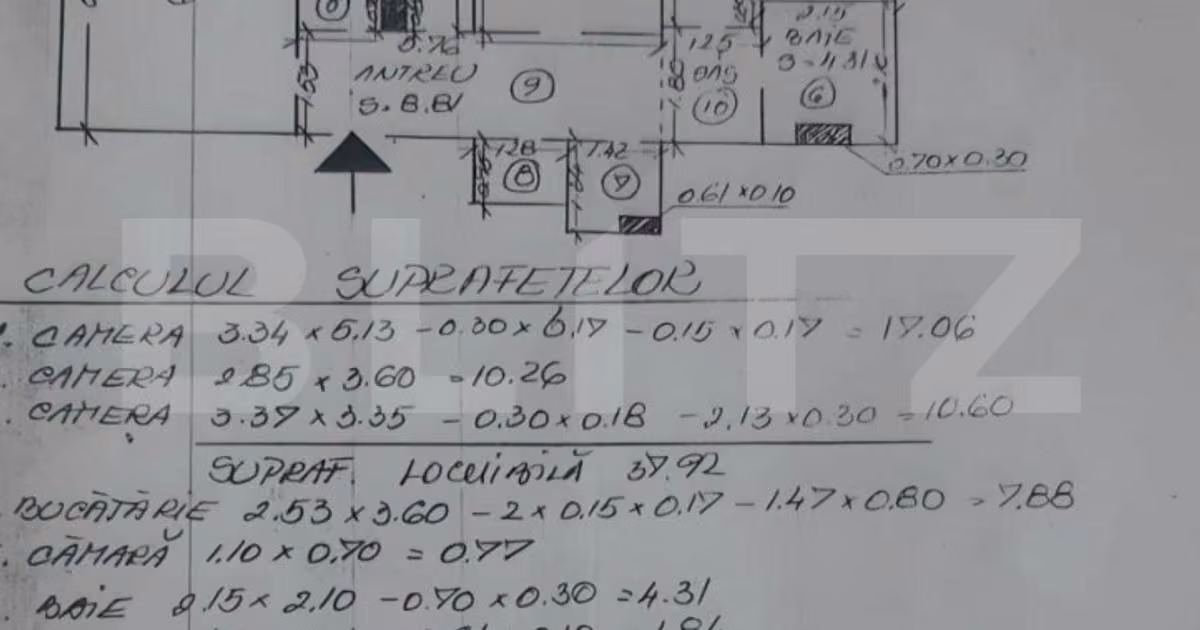 5.76
ANTREU
S. 8.81
9
1.53
125
1.80
10
2.15
BAIE
S=4.31
6
0.70×0.30
128
8
1.42
7
0.61×0.10
BLITZ
CALCULUL SUPRAFEȚELOR
CAMERA 3.34 × 5.13 - 0.30 × 0.17 - 0.15 × 0.17 = 17.06
CAMERA 2.85 × 3.60 = 10.26
CAMERA 3.37 × 3.35 - 0.30 × 0.18 - 2.13 × 0.30 = 10.60
SUPRAF. LOCUIBILĂ 37.92
BUCĂTĂRIE 2.53 × 3.60 - 2 × 0.15 × 0.17 - 1.47 × 0.80 = 7.88
CĂMARĂ 1.10 × 0.70 = 0.77
BAIE 2.15 × 2.10 - 0.70 × 0.30 = 4.31